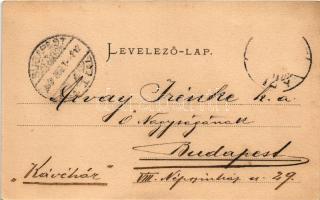 BUDAPEST
LEVELEZŐ-LAP.
Árvay Irénke k. a.
Ő Nagyságának
Budapest
"Kávéház"
VIII. Népszinház u. 29.